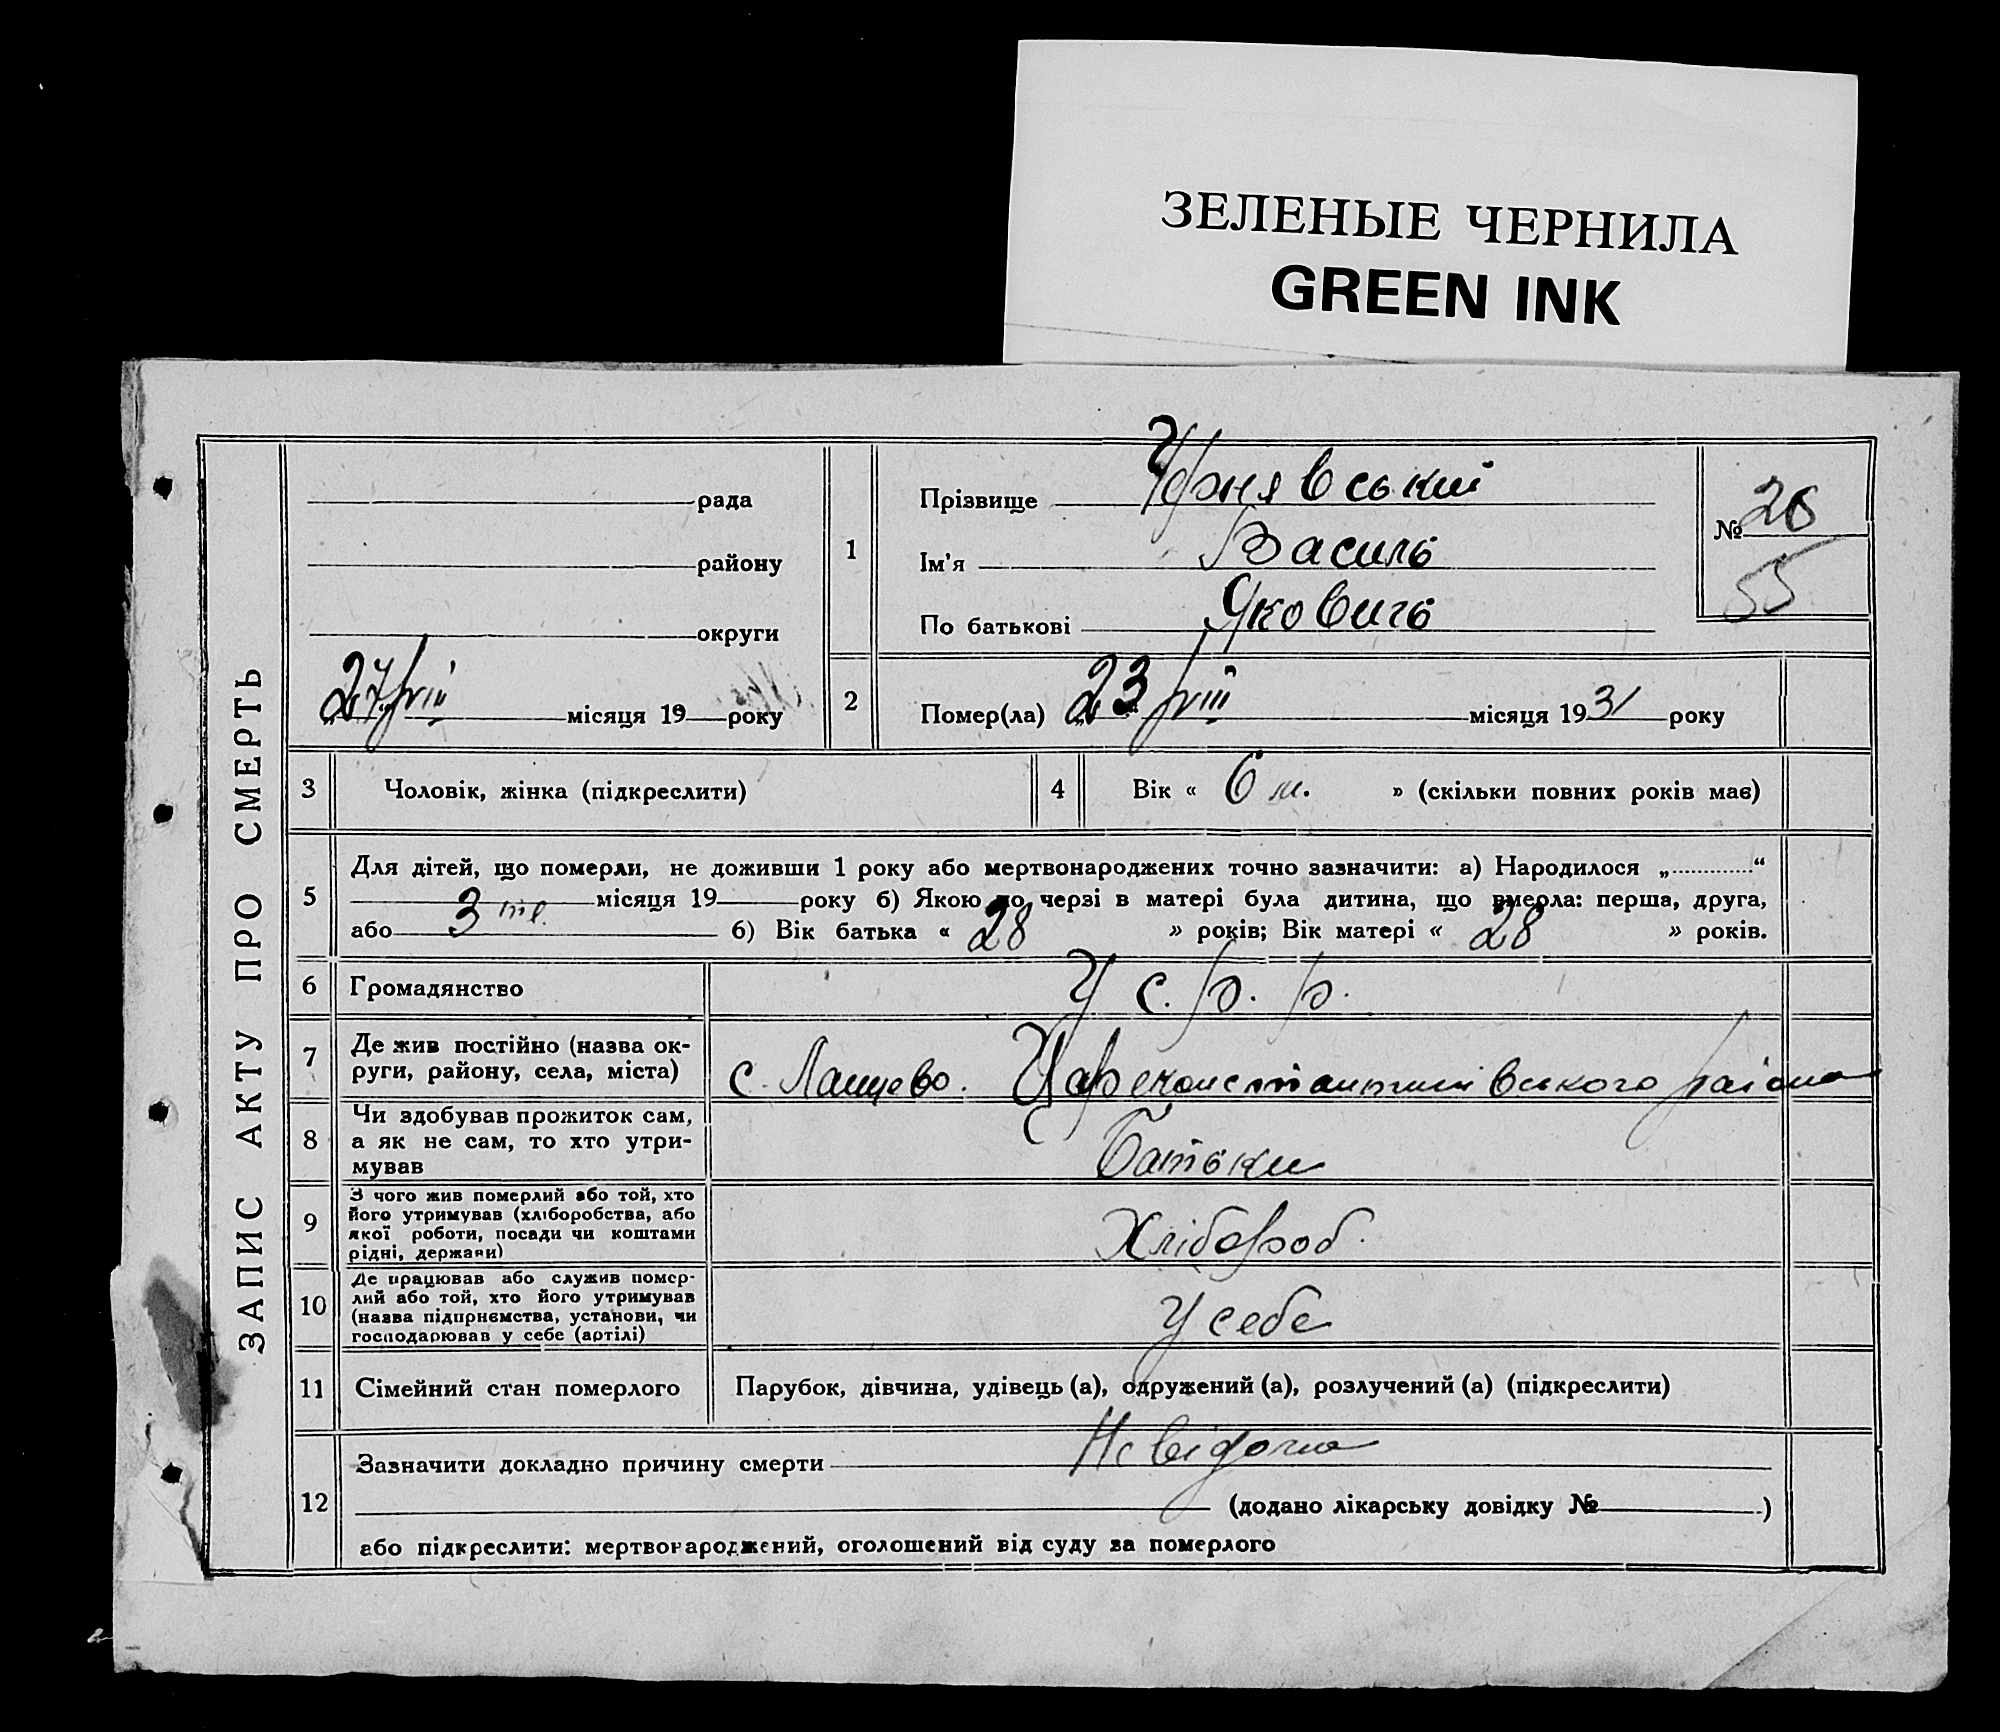 ЗЕЛЕНЫЕ ЧЕРНИЛА
GREEN INK
ЗАПИС АКТУ ПРО СМЕРТЬ
рада
району
округи
27/VIII місяця 19 року
1
Прізвище
Ім'я Василь
По батькові Якович
№ 26
55
2
Помер(ла) 23/VIII місяця 1931 року
3
Чоловік, жінка (підкреслити)
4
Вік « 6 м. » (скільки повних років має)
5
Для дітей, що померли, не доживши 1 року або мертвонароджених точно зазначити: а) Народилося „............“
місяця 19 року б) Якою по черзі в матері була дитина, що вмерла: перша, друга,
або 3 тя. б) Вік батька « 28 » років; Вік матері « 28 » років.
6
Громадянство
У с. р. р.
7
Де жив постійно (назва ок-
руги, району, села, міста)
с. Ланцево. Цареконстантинівського району
8
Чи здобував прожиток сам,
а як не сам, то хто утри-
мував
Батьки
9
З чого жив померлий або той, хто
його утримував (хліборобства, або
якої роботи, посади чи коштами
рідні, держави)
Хлібороб.
10
Де працював або служив помер-
лий або той, хто його утримував
(назва підприємства, установи, чи
господарював у себе (артілі)
У себе
11
Сімейний стан померлого
Парубок, дівчина, удівець (а), одружений (а), розлучений (а) (підкреслити)
12
Зазначити докладно причину смерти Невідома
(додано лікарську довідку № )
або підкреслити: мертвонароджений, оголошений від суду за померлого